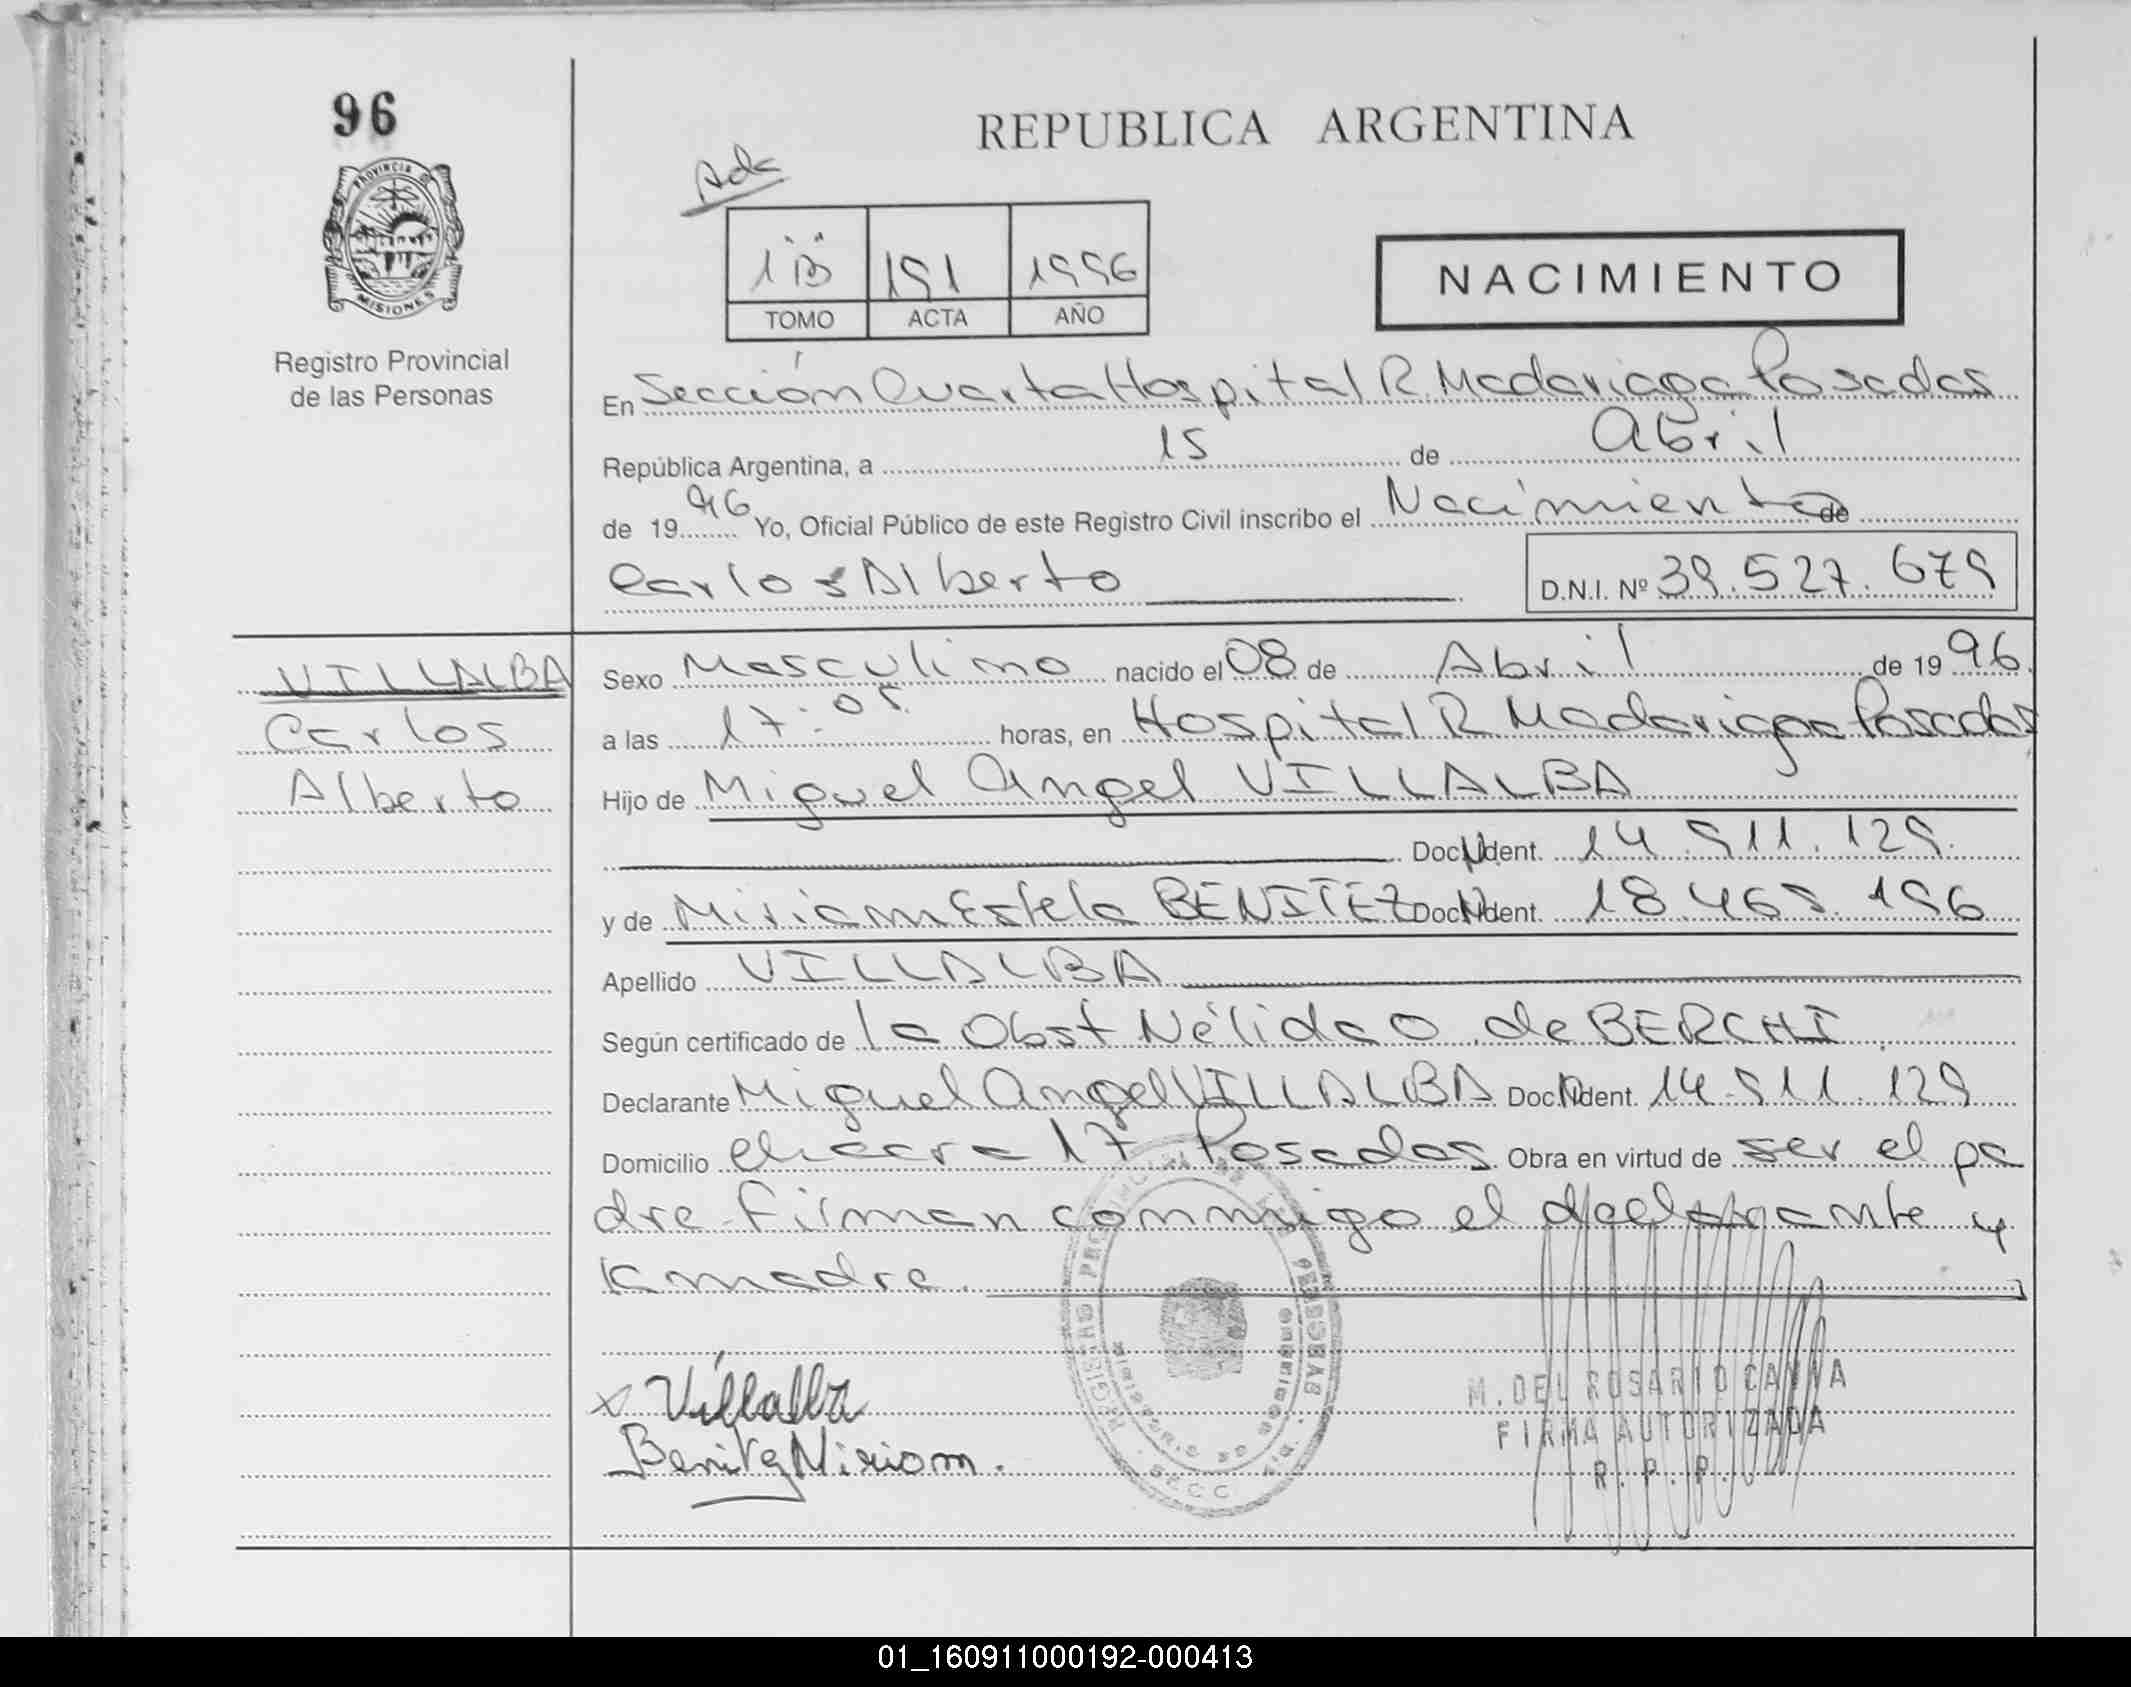 96
PROVINCIA DE
MISIONES
Registro Provincial
de las Personas
REPUBLICA ARGENTINA
Ada
1 "B" 191 1996
TOMO ACTA AÑO
NACIMIENTO
En Sección Cuarta Hospital R. Madariaga Posadas
República Argentina, a 15 de Abril
de 1996 Yo, Oficial Público de este Registro Civil inscribo el Nacimiento de
Carlos Alberto D.N.I. Nº 39.527.679
VILLALBA
Carlos
Alberto
Sexo Masculino nacido el 08 de Abril de 1996.
a las 17:05 horas, en Hospital R Madariaga Posadas
Hijo de Miguel Angel VILLALBA
Doc. Ident. 14.911.129.
y de Miriam Estela BENITEZ Doc. Ident. 18.465.196
Apellido VILLALBA
Según certificado de la Obst Nélida O. de BERCHI
Declarante Miguel Angel VILLALBA Doc. Ident. 14.911.129
Domicilio chacra 17 Posadas Obra en virtud de ser el pa
dre. Firman conmigo el declarante y
la madre.
x Villalba
Benitez Miriam.
M. DEL ROSARIO
FIRMA AUTORIZADA
R. P. P.
01_160911000192-000413